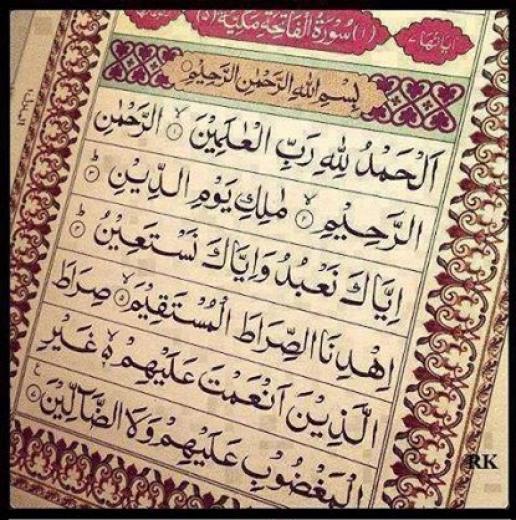 اٰيَاتُهَا ٧ (١) سُوْرَةُ الْفَاتِحَةِ مَكِّيَّةٌ (٥)
بِسْمِ اللهِ الرَّحْمٰنِ الرَّحِيْمِ
اَلْحَمْدُ لِلّٰهِ رَبِّ الْعٰلَمِيْنَ ۙ ١ الرَّحْمٰنِ
الرَّحِيْمِ ۙ ٢ مٰلِكِ يَوْمِ الدِّيْنِ ؕ ٣
اِيَّاكَ نَعْبُدُ وَاِيَّاكَ نَسْتَعِيْنُ ؕ ٤
اِهْدِنَا الصِّرَاطَ الْمُسْتَقِيْمَ ۙ ٥ صِرَاطَ
الَّذِيْنَ اَنْعَمْتَ عَلَيْهِمْ ۙ ٦ غَيْرِ
الْمَغْضُوْبِ عَلَيْهِمْ وَلَا الضَّآلِّيْنَ ٧
RK